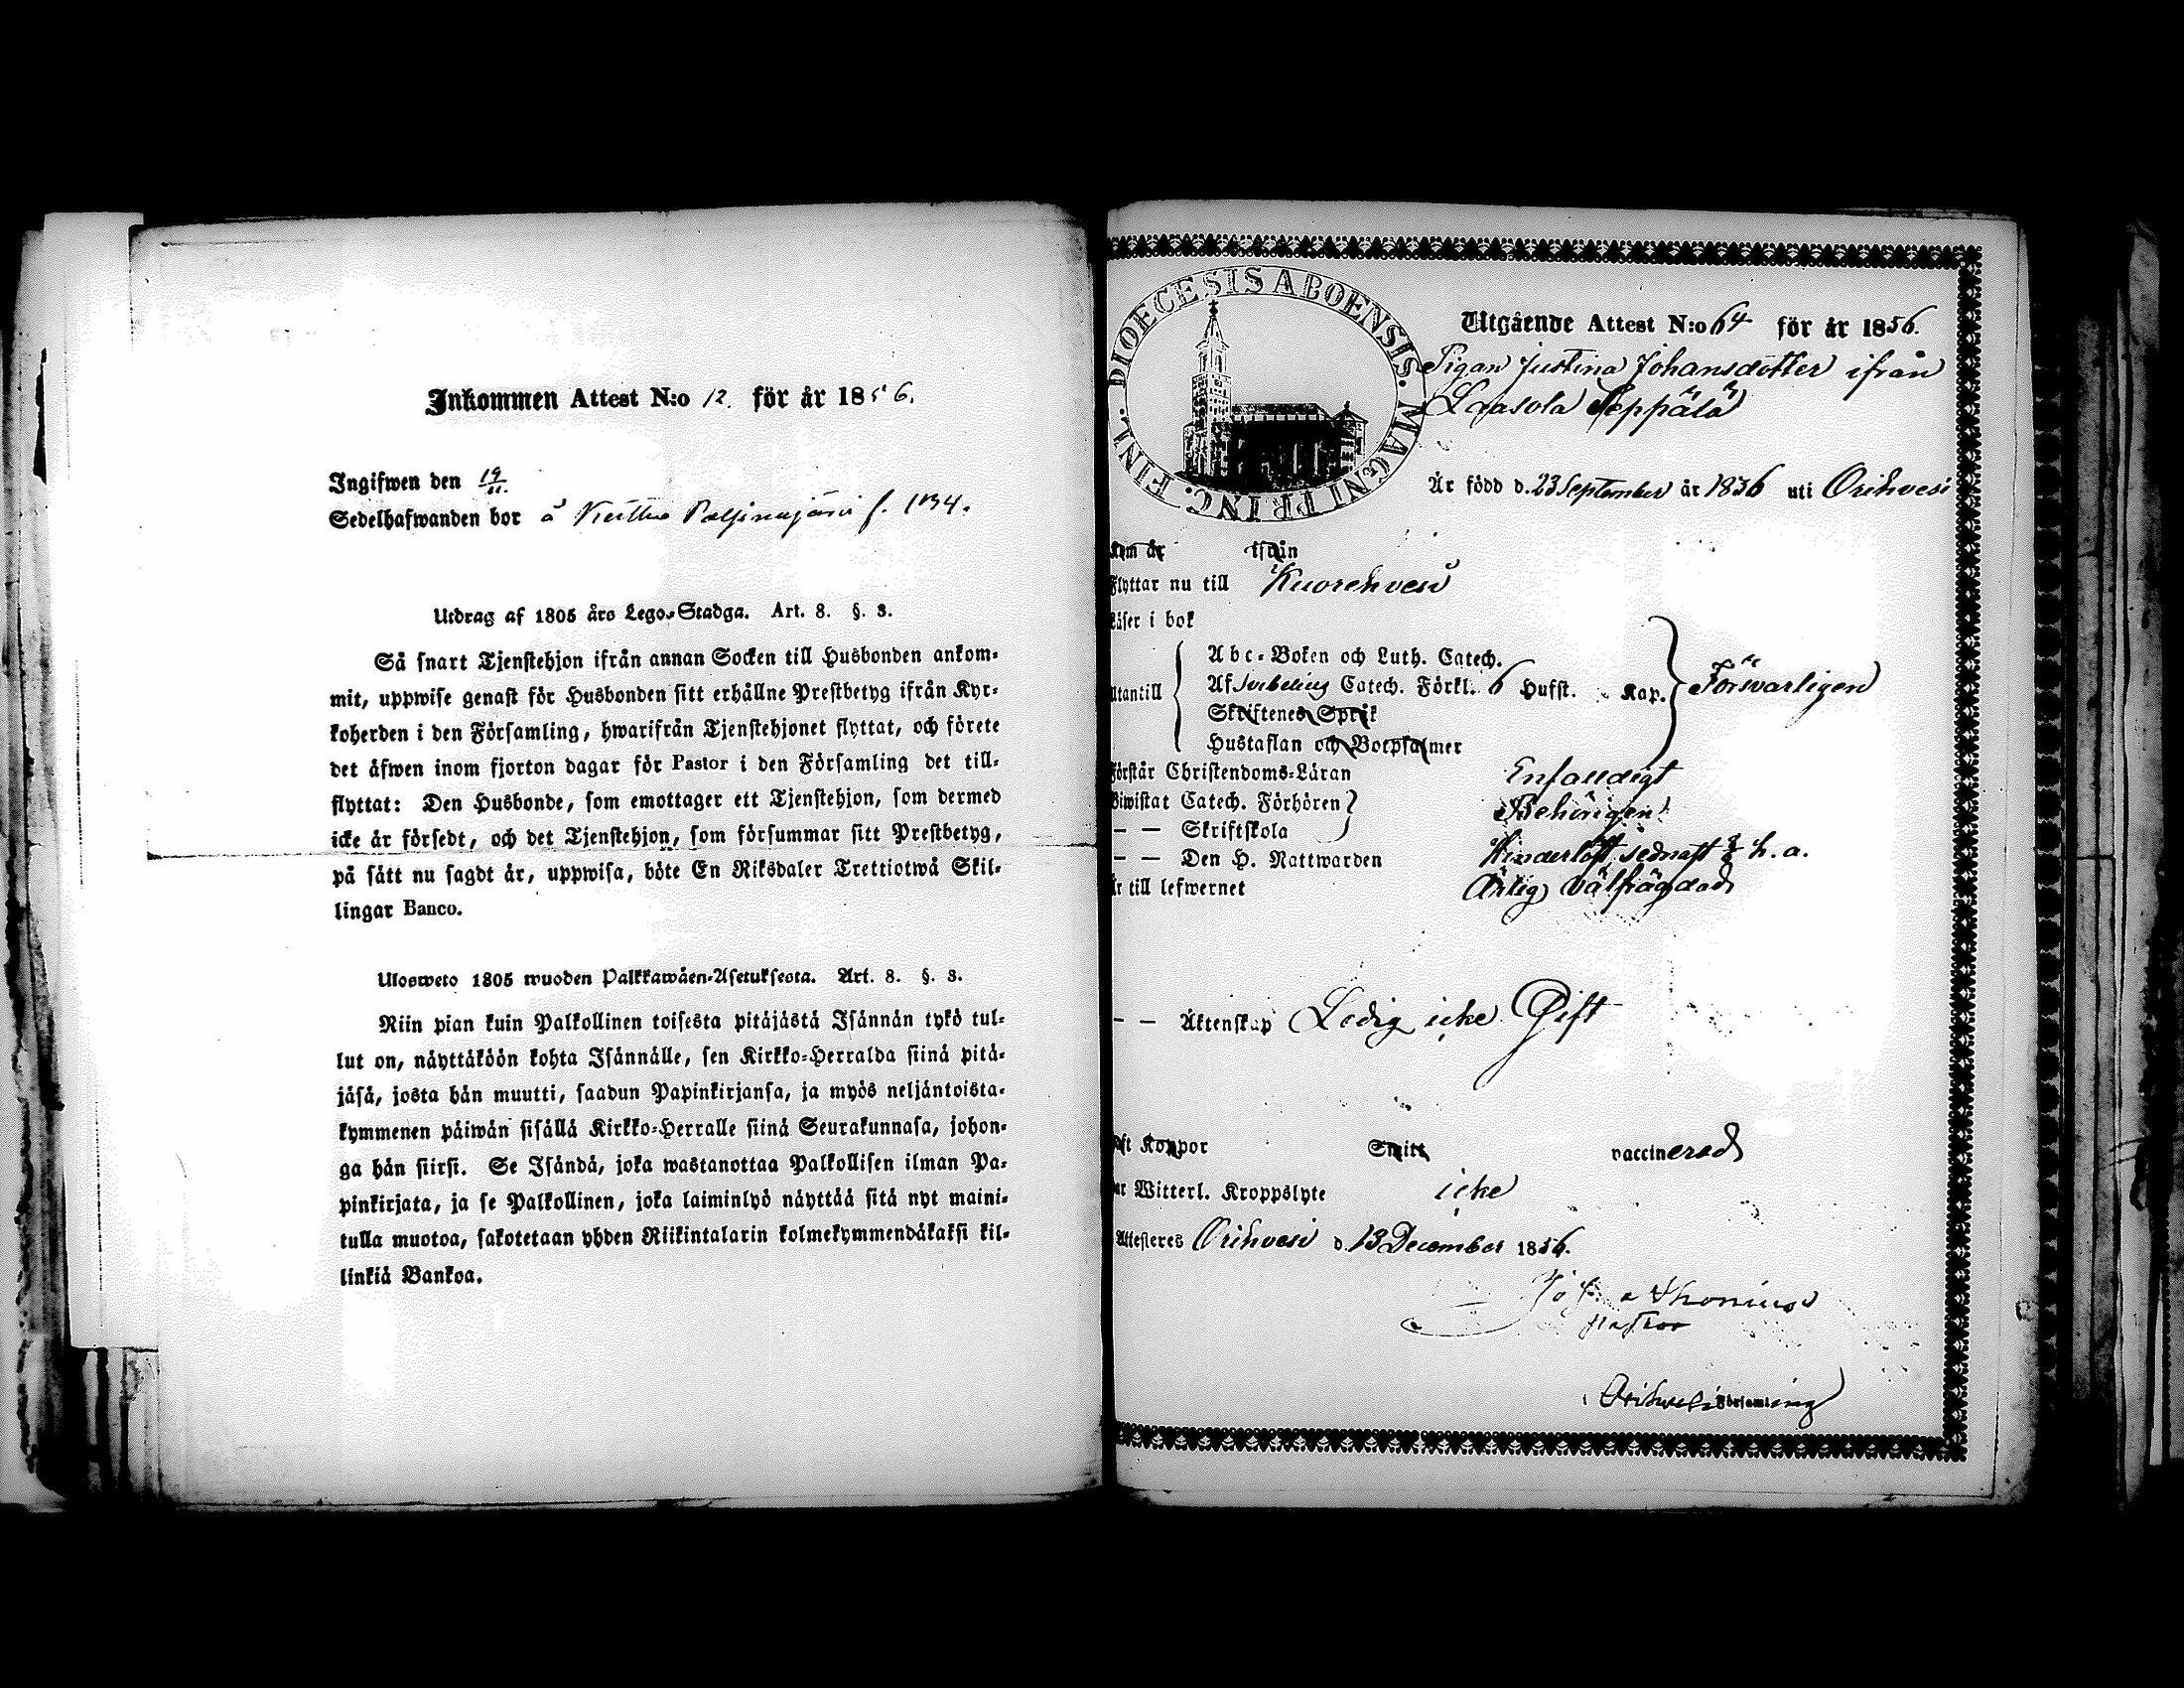 Inkommen Attest N:o 12. för år 1856.
Ingifwen den 19/11.
Sedelhafwanden bor å
Utdrag af 1805 års Lego-Stadga. Art. 8. §. 3.
Så snart Tjenstehjon ifrån annan Socken till Husbonden ankom-
mit, uppwise genast för Husbonden sitt erhållne Prestbetyg ifrån Kyr-
koherden i den Församling, hwarifrån Tjenstehjonet flyttat, och förete
det äfwen inom fjorton dagar för Pastor i den Församling det till-
flyttat: Den Husbonde, som emottager ett Tjenstehjon, som dermed
icke är försedt, och det Tjenstehjon, som försummar sitt Prestbetyg,
på sätt nu sagdt är, uppwisa, böte En Riksdaler Trettiotwå Skil-
lingar Banco.
Ulosweto 1805 wuoden Palkkawäen-Asetuksesta. Art. 8. §. 3.
Niin pian kuin Palkollinen toisesta pitäjästä Isännän tykö tul-
lut on, näyttäköön kohta Isännälle, sen Kirkko-Herralda siinä pitä-
jäsä, josta hän muutti, saadun Papinkirjansa, ja myös neljäntoista-
kymmenen päiwän sisällä Kirkko-Herralle siinä Seurakunnasa, johon-
ga hän siirsi. Se Isändä, joka wastanottaa Palkollisen ilman Pa-
pinkirjata, ja se Palkollinen, joka laiminlyö näyttää sitä nyt maini-
tulla muotoa, sakotetaan yhden Riikintalarin kolmekymmendäkaksi kil-
linkiä Bankoa.
DIOECESIS ABOENSIS. MAGNI PRINC. FINL.
Utgående Attest N:o 64 för år 1856.
Pigan Justina Johansdotter ifrån
Laasola Seppälä
Är född d. 23 September år 1836 uti Orihvesi
Kom år ifrån
Flyttar nu till Kuorehvesi
Läser i bok
Utantill
Abc-Boken och Luth. Catech.
Af Svebelius Catech. Förkl. 6 Hufst. Kap. Försvarligen
Skriftenes Språk
Hustaflan och Botpsalmer
Förstår Christendoms-Läran Enfaldigt
Biwistat Catech. Förhören Behörigen
— — Skriftskola
— — Den H. Nattwarden Hinderlöst, sednast h. a.
Är till lefwernet Ärlig välfrägdad
— — Äktenskap Ledig icke Gift
Haft Koppor Smitt vaccinerad
Har Witterl. Kroppslyte icke
Attesteras Orihvesi d. 13 December 1856.
Pastor
Orihvesi Församling